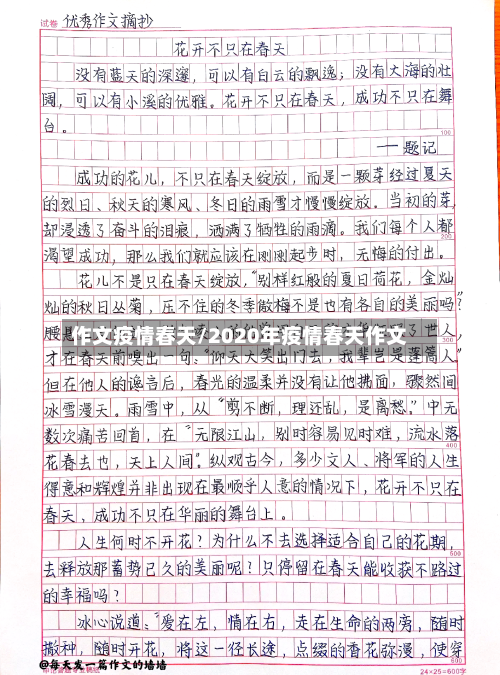 试卷 优秀作文摘抄
花开不只在春天
没有蓝天的深邃，可以有白云的飘逸；没有大海的壮
阔，可以有小溪的优雅。花开不只在春天，成功不只在舞
台。
100
——题记
成功的花儿，不只在春天绽放，而是一颗芽经过夏天
的烈日、秋天的寒风、冬日的雨雪才慢慢绽放。当初的芽，
却浸透了奋斗的泪痕，洒满了牺牲的雨滴。我们每个人都
200
渴望成功，那么我们就应该在刚刚起步时，无悔的付出。
花儿不是只在春天绽放，“别样红般的夏日荷花，金灿
灿的秋日丛菊，压不住的冬季傲梅不是也有各自的美丽吗？
腰
世人，
作文疫情春天/2020年疫情春天作文
才在春天前嗅出一句：“仰天大笑出门去，我辈岂是蓬蒿人”
但在他人的谗言后，春光的温柔并没有让他拂面，骤然间
冰雪漫天。雨雪中，从“剪不断，理还乱，是离愁。”中无
数次痛苦回首，在“无限江山，别时容易见时难，流水落
400
花春去也，天上人间”。纵观古今，多少文人、将军的人生
得意和辉煌并非出现在最顺乎人意的情况下，花开不只在
春天、成功不只在华丽的舞台上。
人生何时不开花？为什么不去选择适合自己的花期，
500
去释放那蓄势已久的美丽呢？只停留在春天能收获不路过
的幸福吗？
冰心说道：“爱在左，情在右，走在生命的两旁，随时
撒种，随时开花，将这一径长途，点缀的香花弥漫，使穿
600
@每天发一篇作文的墙墙
24×25=600字